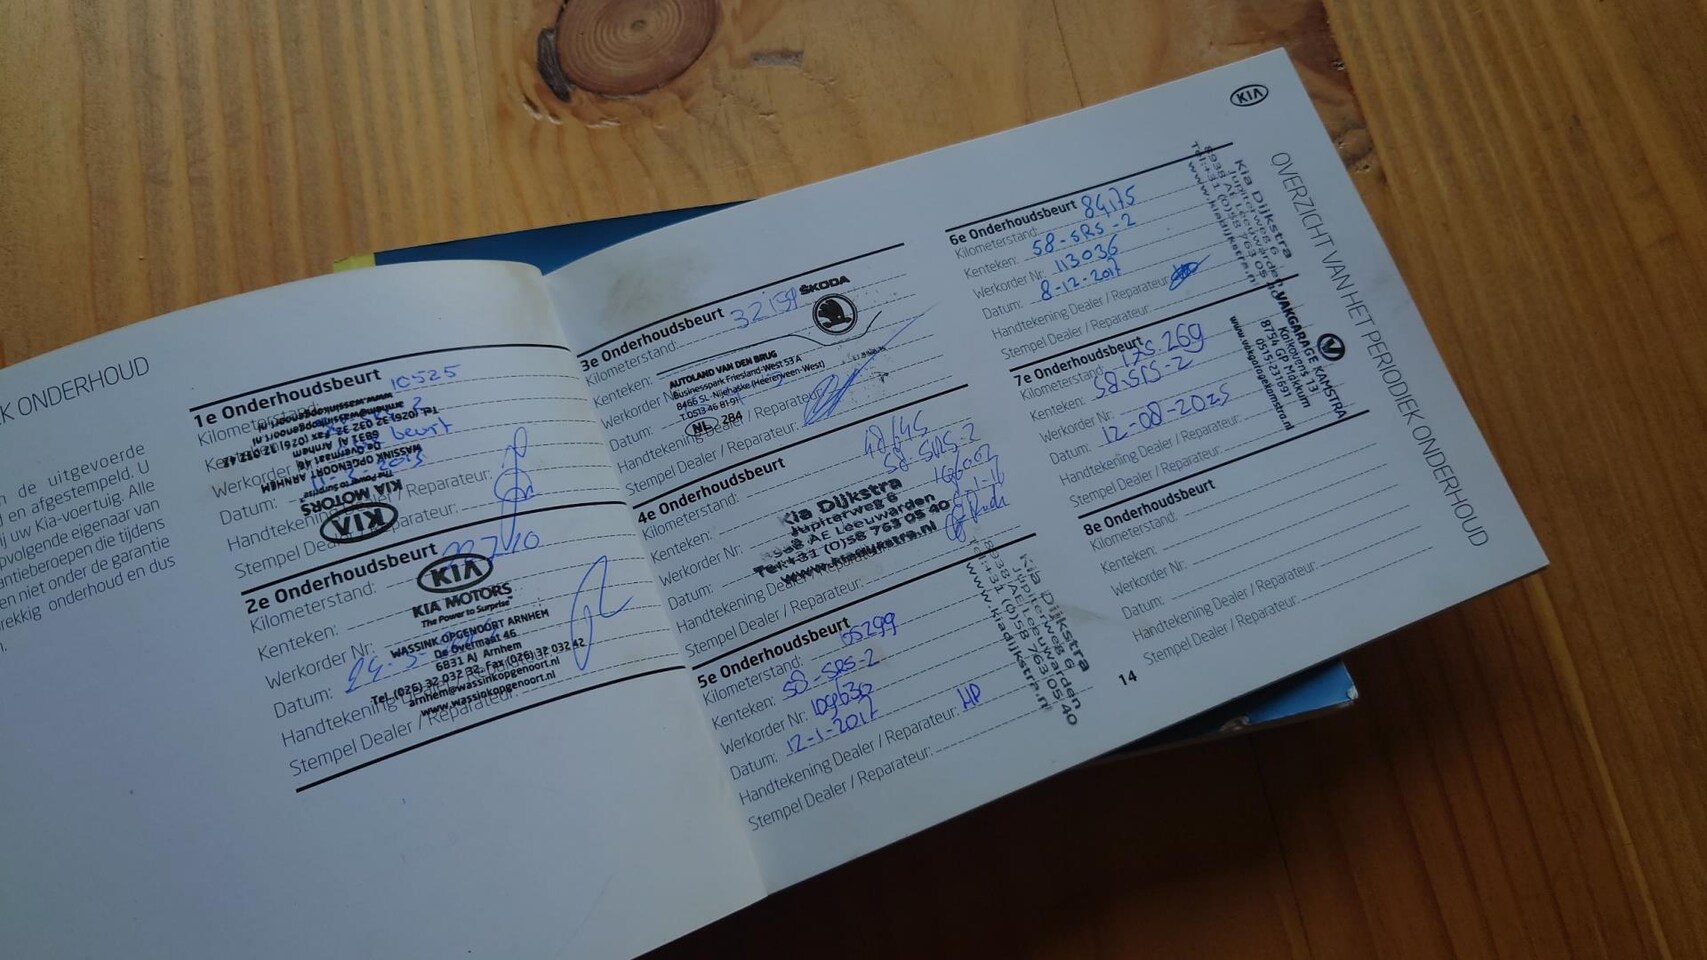 EK ONDERHOUD
n de uitgevoerde
en afgestempeld. U
ij uw Kia-voertuig. Alle
pvolgende eigenaar van
antieberoepen die tijdens
en niet onder de garantie
rekkig onderhoud en dus
1e Onderhoudsbeurt
Kilometerstand: 10525
Werkorder beurt
Datum:
Handtekening Dealer / Reparateur:
Stempel Dealer / Reparateur:
KIA
KIA MOTORS
The Power to Surprise
WASSINK OPGENOORT ARNHEM
De Overmaat 46
6831 AJ Arnhem
Tel. (026) 32 032 32 Fax (026) 32 032 42
arnhem@wassinkopgenoort.nl
www.wassinkopgenoort.nl
2e Onderhoudsbeurt
Kilometerstand:
Kenteken:
Werkorder Nr:
Datum:
Handtekening Dealer / Reparateur:
Stempel Dealer / Reparateur:
KIA
KIA MOTORS
The Power to Surprise
WASSINK OPGENOORT ARNHEM
De Overmaat 46
6831 AJ Arnhem
Tel. (026) 32 032 32 Fax (026) 32 032 42
arnhem@wassinkopgenoort.nl
www.wassinkopgenoort.nl
3e Onderhoudsbeurt
Kilometerstand:
Kenteken:
Werkorder Nr:
Datum:
Handtekening Dealer / Reparateur:
Stempel Dealer / Reparateur:
ŠKODA
AUTOLAND VAN DEN BRUG
Businesspark Friesland-West 53 A
8466 SL - Nijehaske (Heerenveen-West)
T. 0513 46 81 91
NL 284
4e Onderhoudsbeurt
Kilometerstand:
Kenteken: 58-SRS-2
Werkorder Nr:
Datum:
Handtekening Dealer / Reparateur:
Stempel Dealer / Reparateur:
Kia Dijkstra
Jupiterweg 6
8938 AE Leeuwarden
Tel:+31 (0)58 763 05 40
www.kiadijkstra.nl
5e Onderhoudsbeurt
Kilometerstand:
Kenteken: 58-SRS-2
Werkorder Nr: 109636
Datum: 12-1-2017
Handtekening Dealer / Reparateur:
Stempel Dealer / Reparateur:
Kia Dijkstra
Jupiterweg 6
8938 AE Leeuwarden
Tel:+31 (0)58 763 05 40
www.kiadijkstra.nl
KIA
OVERZICHT VAN HET PERIODIEK ONDERHOUD
6e Onderhoudsbeurt
Kilometerstand: 84175
Kenteken: 58-SRS-2
Werkorder Nr: 113036
Datum: 8-12-2017
Handtekening Dealer / Reparateur:
Stempel Dealer / Reparateur:
Kia Dijkstra
Jupiterweg 6
8938 AE Leeuwarden
Tel:+31 (0)58 763 05 40
www.kiadijkstra.nl
7e Onderhoudsbeurt
Kilometerstand: 175.269
Kenteken: 58-SRS-2
Werkorder Nr:
Datum: 12-08-2025
Handtekening Dealer / Reparateur:
Stempel Dealer / Reparateur:
VAKGARAGE KAMSTRA
Kalkovens 13
8754 GP Makkum
0515)231691
www.vakgaragekamstra.nl
8e Onderhoudsbeurt
Kilometerstand:
Kenteken:
Werkorder Nr:
Datum:
Handtekening Dealer / Reparateur:
Stempel Dealer / Reparateur:
14